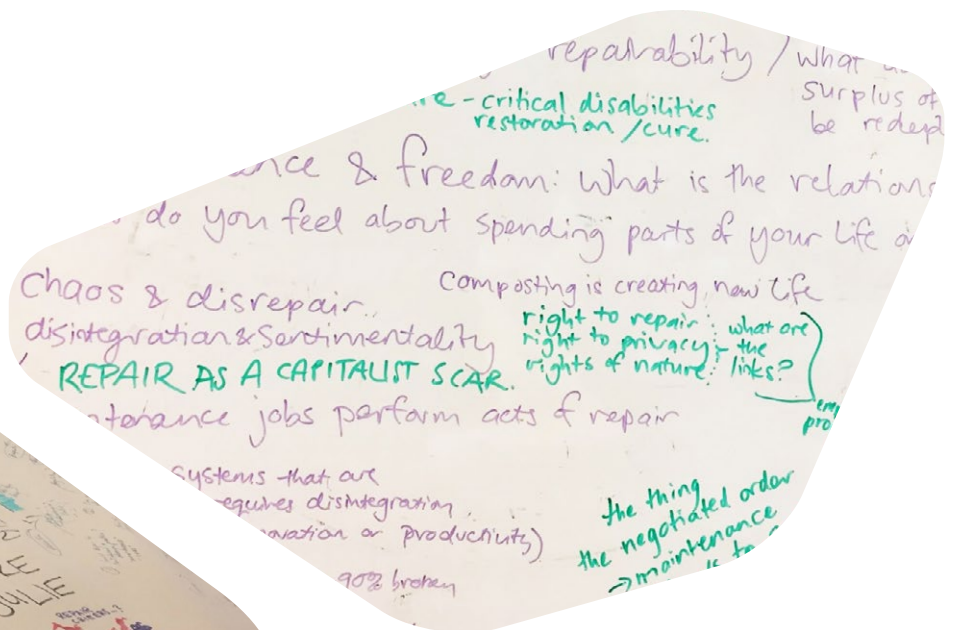 repairability / what
surplus of
be
- critical disabilities
restoration / cure.
& freedom: What is the
do you feel about spending parts of your life
Chaos & disrepair
Composting is creating new life
disintegration & Sentimentality
right to repair
right to privacy
rights of nature
what are
the
links?
REPAIR AS A CAPITALIST SCAR.
jobs perform acts of repair
systems that are
disintegration
or productivity)
90% broken
the thing
the negotiated order
→ maintenance
is to
JULIE
REPAIR